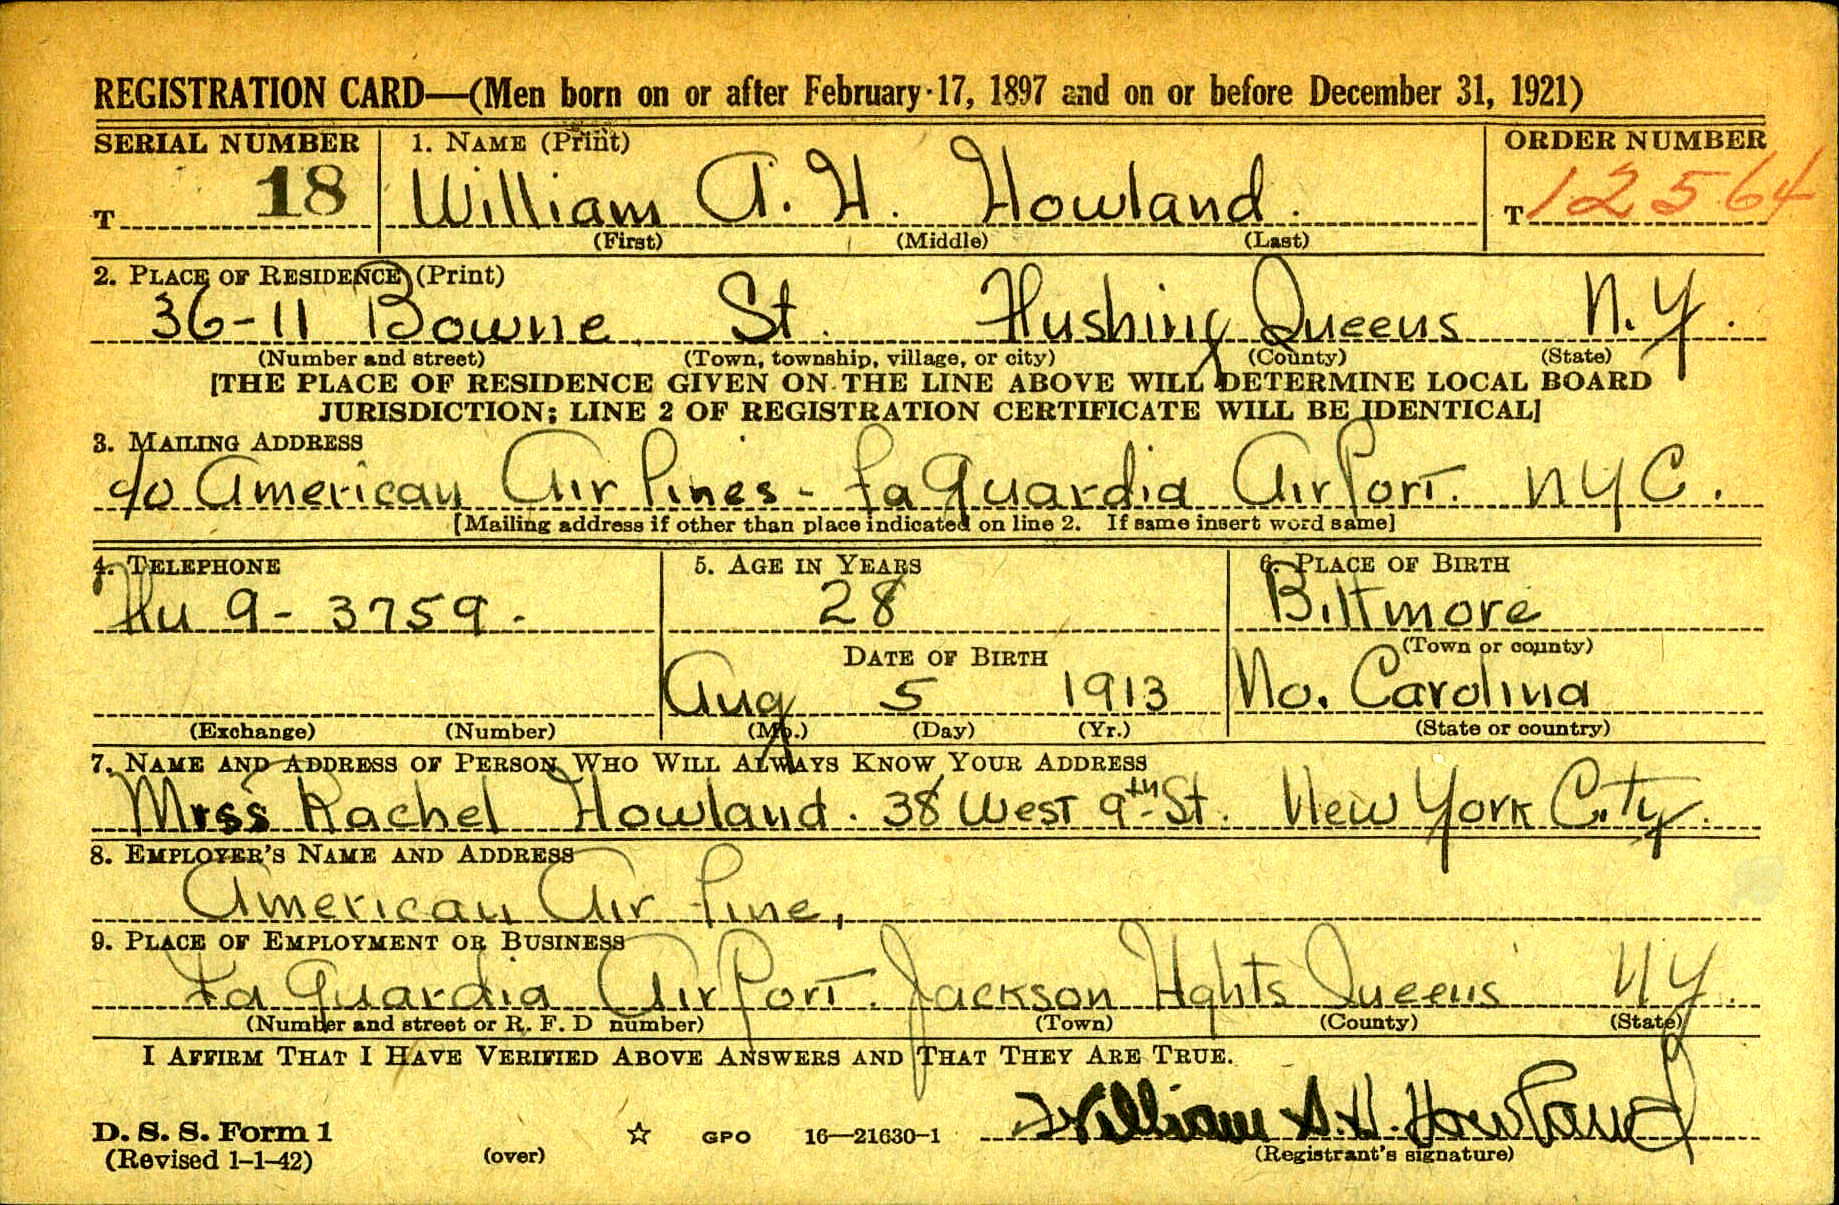 REGISTRATION CARD—(Men born on or after February 17, 1897 and on or before December 31, 1921)
SERIAL NUMBER 1. NAME (Print) ORDER NUMBER
T 18 William A. H. Howland. T 12564
(First) (Middle) (Last)
2. PLACE OF RESIDENCE (Print)
36-11 Bowne St. Flushing Queens N.Y.
(Number and street) (Town, township, village, or city) (County) (State)
[THE PLACE OF RESIDENCE GIVEN ON THE LINE ABOVE WILL DETERMINE LOCAL BOARD
JURISDICTION; LINE 2 OF REGISTRATION CERTIFICATE WILL BE IDENTICAL]
3. MAILING ADDRESS
c/o American Air Lines - La Guardia Air Port. NYC.
[Mailing address if other than place indicated on line 2. If same insert word same]
4. TELEPHONE 5. AGE IN YEARS 6. PLACE OF BIRTH
Flu 9-3759. 28 Biltmore
DATE OF BIRTH (Town or county)
Aug 5 1913 No. Carolina
(Exchange) (Number) (Mo.) (Day) (Yr.) (State or country)
7. NAME AND ADDRESS OF PERSON WHO WILL ALWAYS KNOW YOUR ADDRESS
Rachel Howland. 38 West 9th St. New York City.
8. EMPLOYER'S NAME AND ADDRESS
American Air Line,
9. PLACE OF EMPLOYMENT OR BUSINESS
La Guardia Air Port. Jackson Hghts Queens NY.
(Number and street or R. F. D number) (Town) (County) (State)
I AFFIRM THAT I HAVE VERIFIED ABOVE ANSWERS AND THAT THEY ARE TRUE.
William A. H. Howland
D. S. S. Form 1
(Revised 1-1-42) (over) ☆ GPO 16—21630-1 (Registrant's signature)